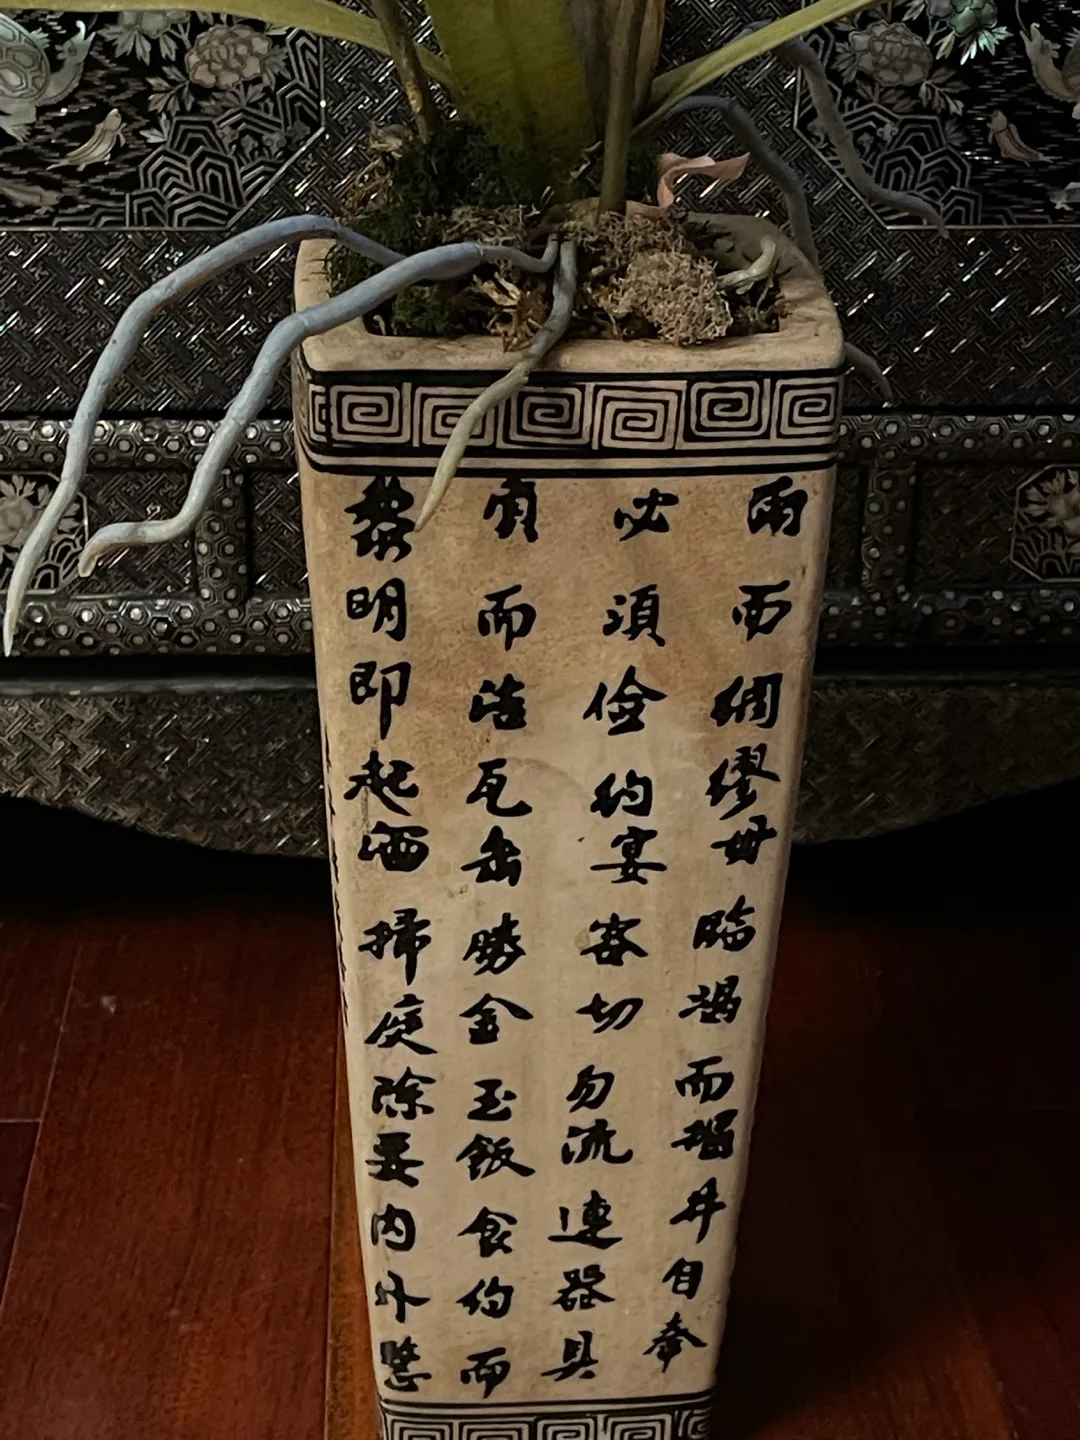 雨而綢繆毋臨渴而掘井自奉
必須儉約宴客切勿流連器具
質而洁瓦缶勝金玉飯食約而
黎明即起洒掃庭除要內外整